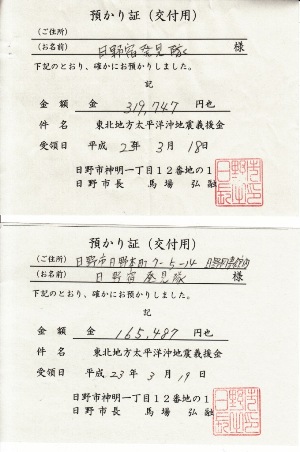 預かり証（交付用）
（ご住所）
（お名前） 日野宿発見隊 様
下記のとおり、確かにお預かりしました。
記
金額 金 319,747 円也
件名 東北地方太平洋沖地震義援金
受領日 平成 2年 3月 18日
日野市神明一丁目12番地の1
日野市長 馬場 弘融
預かり証（交付用）
（ご住所） 日野市日野本町7-5-14
（お名前） 日野宿発見隊 様
下記のとおり、確かにお預かりしました。
記
金額 金 165,487 円也
件名 東北地方太平洋沖地震義援金
受領日 平成 23年 3月 19日
日野市神明一丁目12番地の1
日野市長 馬場 弘融